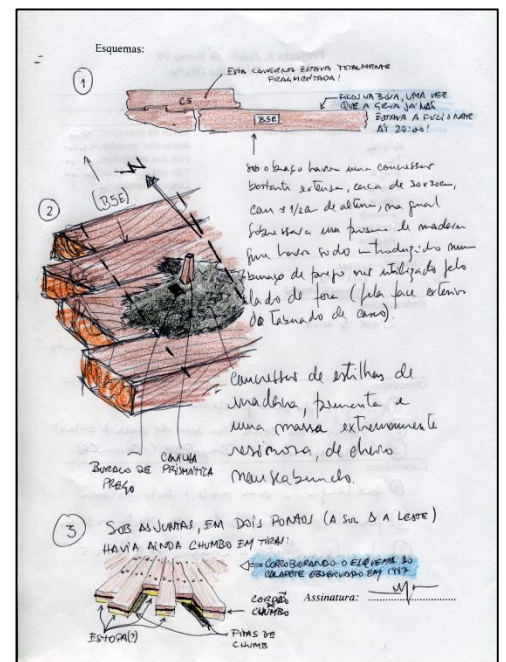 Esquemas:
1
ESTA CAVERNA ESTAVA TOTALMENTE
FRAGMENTADA!
C5
B5E
FICOU NA BOIA, UMA VEZ
QUE A GRUA JÁ NÃO
ESTAVA A FUNCIONAR
ÀS 20:00!
N
2
(B5E)
sob o braço havia uma concreção
bastante extensa, cerca de 30x30cm,
com ± 1/2cm de altura, na qual
um prisma de madeira
que havia sido introduzido num
buraco de prego não utilizado pelo
lado de fora (pela face exterior
do tabuado do casco).
concreção de estilhas de
madeira, pimenta e
uma massa extremamente
resinosa, de cheiro
nauseabundo.
BURACO DE
PREGO
CAVILHA
PRISMÁTICA
3
SOB AS JUNTAS, EM DOIS PONTOS (A SUL & A LESTE)
HAVIA AINDA CHUMBO EM TIRAS:
CORROBORANDO O ESQUEMA DO
CALAFETE OBSERVADO EM 1997
CORDÃO
DE
CHUMBO
Assinatura:
ESTOPA(?)
FITAS DE
CHUMB